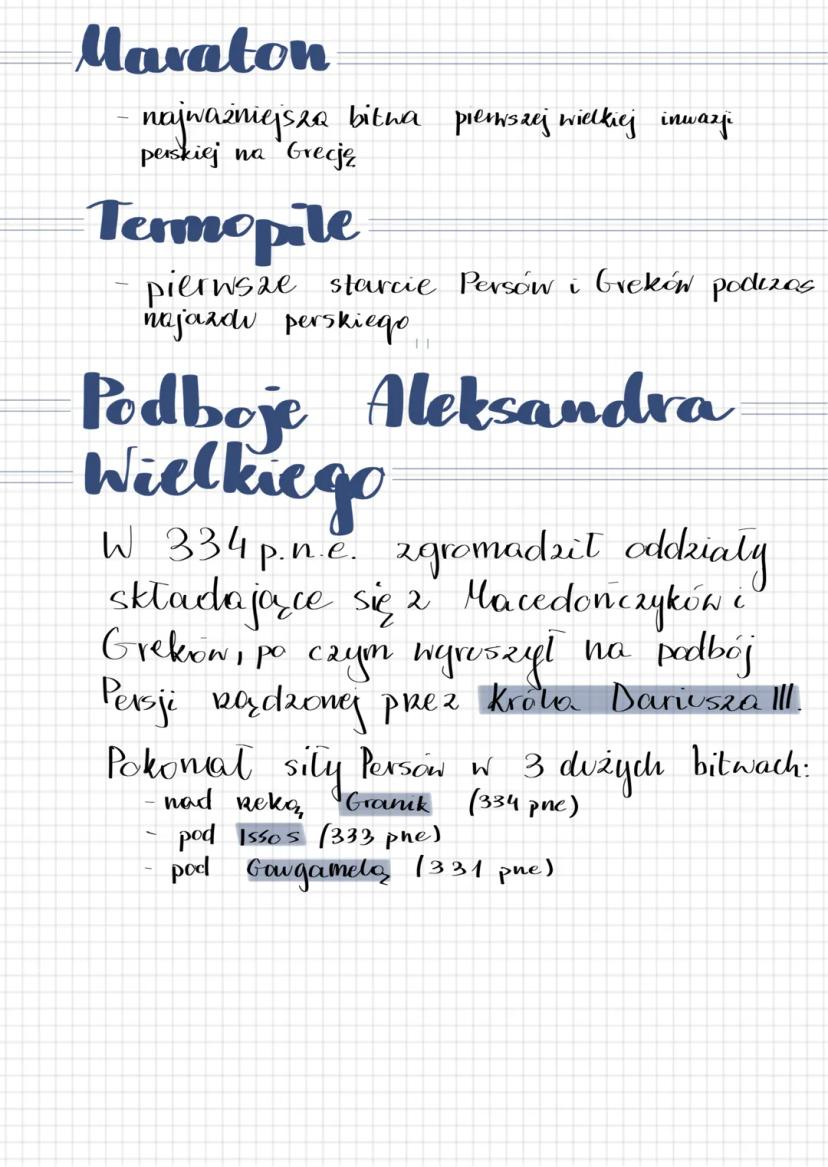 Maraton
- najważniejsza bitwa pierwszej wielkiej inwazji
perskiej na Grecję
Termopile
- pierwsze starcie Persów i Greków podczas
najazdu perskiego
Podboje Aleksandra
Wielkiego
W 334 p.n.e. zgromadził oddziały
składające się z Macedończyków i
Greków, po czym wyruszył na podbój
Persji rządzonej przez króla Dariusza III.
Pokonał siły Persów w 3 dużych bitwach:
- nad rzeką Granik (334 pne)
- pod Issos (333 pne)
- pod Gaugamelą (331 pne)